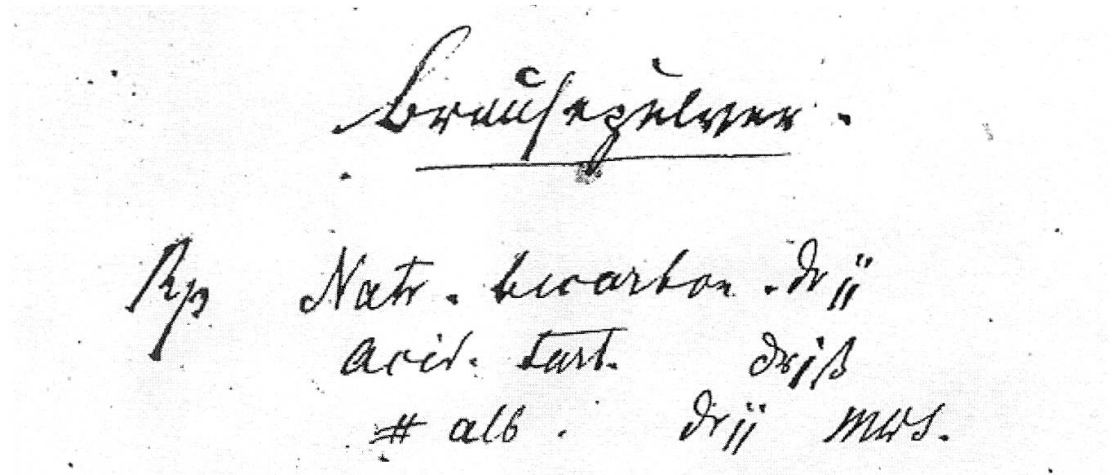 Brausepulver.
Rp Natr. bicarbon. dr ij
Acid. tart. dr jß
# alb. dr ij MDS.